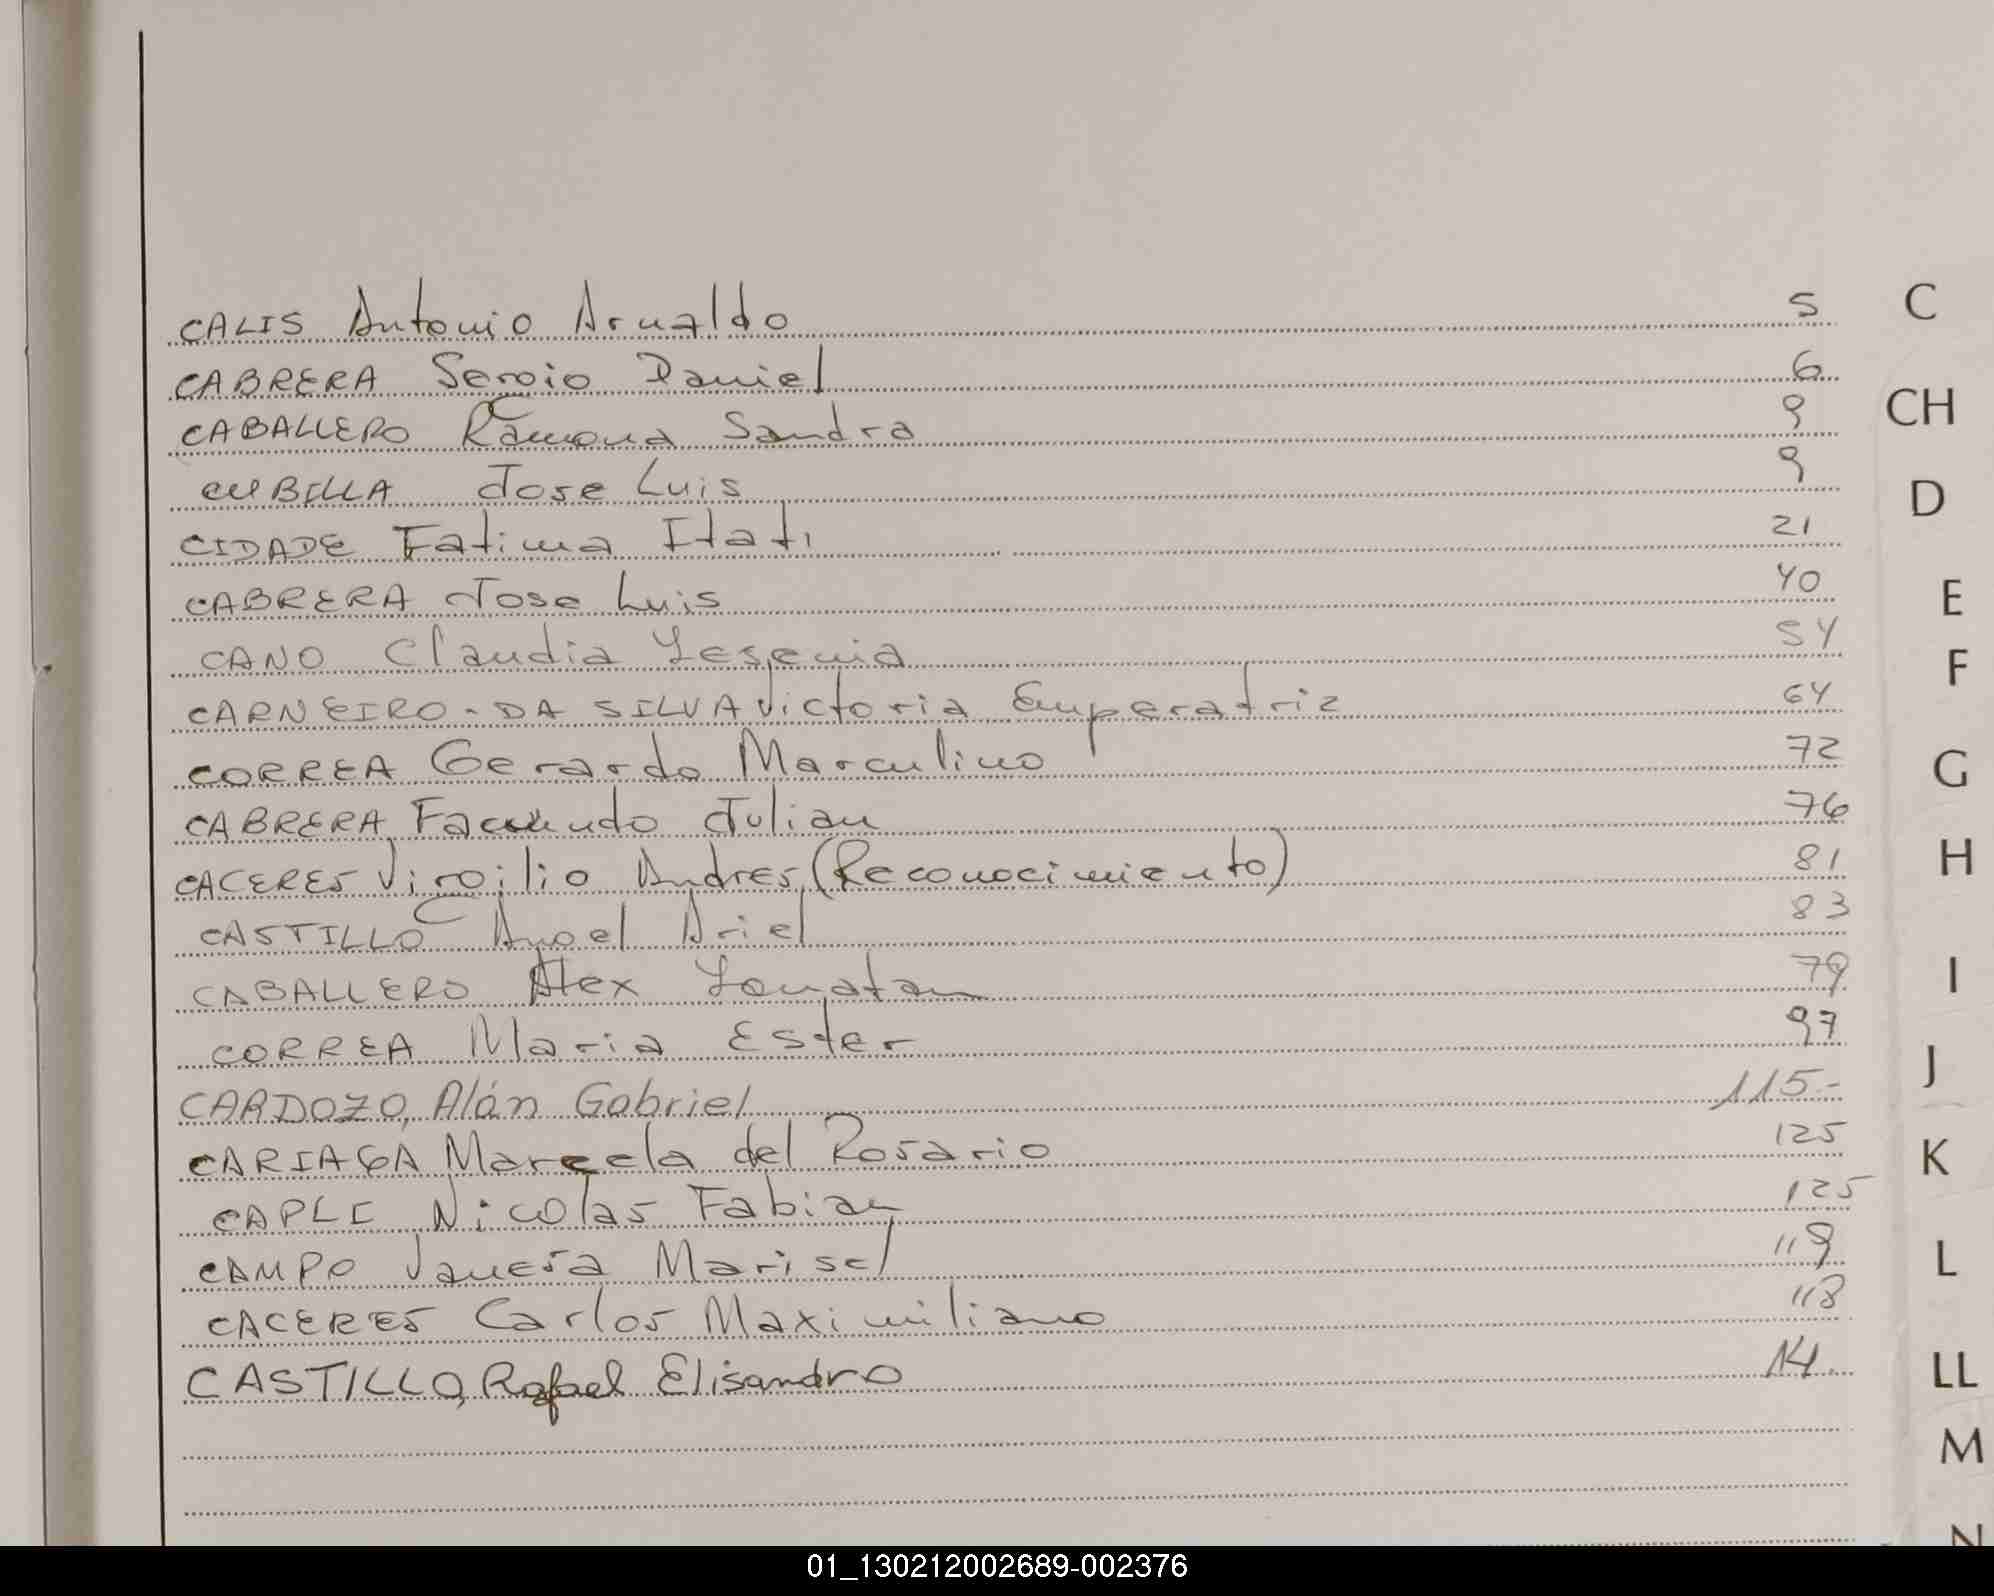 CALIS Antonio Arnaldo 5
CABRERA Sergio Daniel 6
CABALLERO Ramona Sandra 9
CUBILLA Jose Luis 9
CIDADE Fatima Itati 21
CABRERA Jose Luis 40
CANO Claudia Yesenia 54
CARNEIRO-DA SILVA Victoria Emperatriz 64
CORREA Gerardo Marculino 72
CABRERA Facundo Julian 76
CACERES Virgilio Andres (Reconocimiento) 81
CASTILLO Angel Ariel 83
CABALLERO Alex Yonatan 79
CORREA Maria Ester 97
CARDOZO, Alán Gabriel 115-
CARIAGA Marcela del Rosario 125
Nicolas Fabian 125
CAMPO Vanesa Marisel 119
CACERES Carlos Maximiliano 118
CASTILLO, Rafael Elisandro 14.
C
CH
D
E
F
G
H
I
J
K
L
LL
M
N
01_130212002689-002376